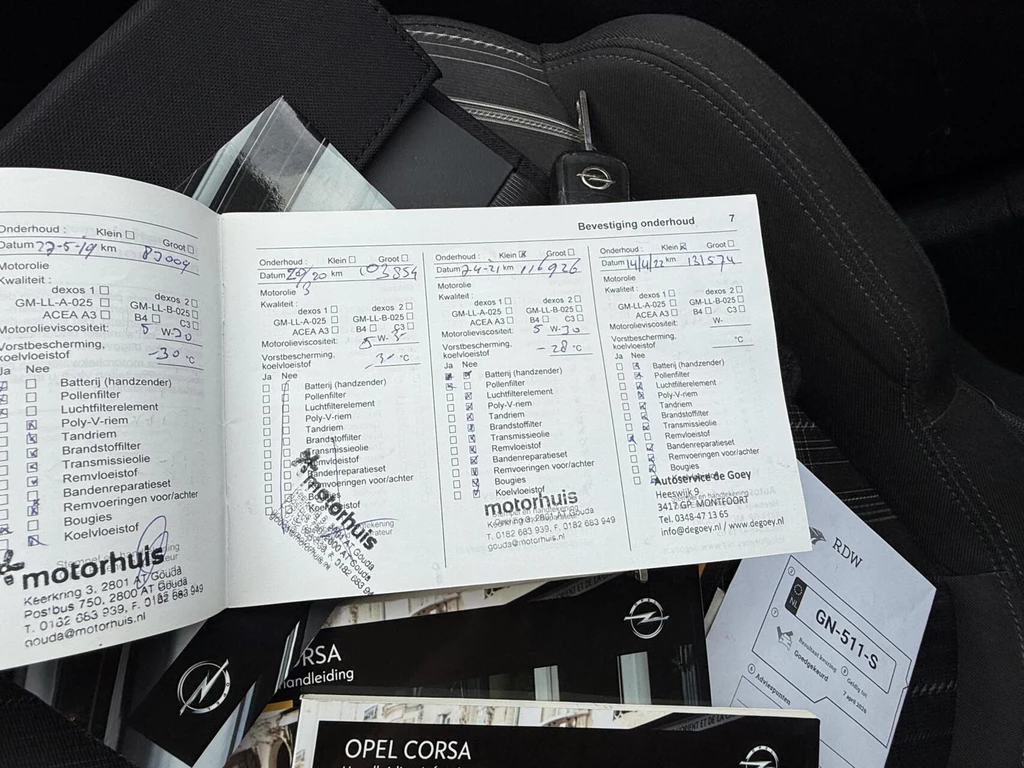 Onderhoud : Klein Groot
Datum 22-5-19 km
Motorolie
Kwaliteit :
dexos 1 dexos 2
GM-LL-A-025 GM-LL-B-025
ACEA A3 B4 C3
Motorolieviscositeit: 5 W-30
Vorstbescherming,
koelvloeistof -30 °C
Ja Nee
Batterij (handzender)
Pollenfilter
Luchtfilterelement
Poly-V-riem
Tandriem
Brandstoffilter
Transmissieolie
Remvloeistof
Bandenreparatieset
Remvoeringen voor/achter
Bougies
Koelvloeistof
motorhuis
Keerkring 3, 2801 AT Gouda
Postbus 750, 2800 AT Gouda
T. 0182 683 939, F. 0182 683 949
gouda@motorhuis.nl
Bevestiging onderhoud 7
Onderhoud : Klein Groot
Datum 20 km 103854
Motorolie
Kwaliteit :
dexos 1 dexos 2
GM-LL-A-025 GM-LL-B-025
ACEA A3 B4 C3
Motorolieviscositeit: 5 W-
Vorstbescherming,
koelvloeistof °C
Ja Nee
Batterij (handzender)
Pollenfilter
Luchtfilterelement
Poly-V-riem
Tandriem
Brandstoffilter
Transmissieolie
Remvloeistof
Bandenreparatieset
Remvoeringen voor/achter
Bougies
Koelvloeistof
motorhuis
Onderhoud : Klein Groot
Datum 7-4-21 km 116926
Motorolie
Kwaliteit :
dexos 1 dexos 2
GM-LL-A-025 GM-LL-B-025
ACEA A3 B4 C3
Motorolieviscositeit: 5 W-30
Vorstbescherming,
koelvloeistof -28 °C
Ja Nee
Batterij (handzender)
Pollenfilter
Luchtfilterelement
Poly-V-riem
Tandriem
Brandstoffilter
Transmissieolie
Remvloeistof
Bandenreparatieset
Remvoeringen voor/achter
Bougies
Koelvloeistof
motorhuis
Keerkring 3, 2801 AT Gouda
T. 0182 683 939, F. 0182 683 949
gouda@motorhuis.nl
Onderhoud : Klein Groot
Datum 14/4/22 km 131574
Motorolie
Kwaliteit :
dexos 1 dexos 2
GM-LL-A-025 GM-LL-B-025
ACEA A3 B4 C3
Motorolieviscositeit: W-
Vorstbescherming,
koelvloeistof °C
Ja Nee
Batterij (handzender)
Pollenfilter
Luchtfilterelement
Poly-V-riem
Tandriem
Brandstoffilter
Transmissieolie
Remvloeistof
Bandenreparatieset
Remvoeringen voor/achter
Bougies
Koelvloeistof
Autoservice de Goey
Heeswijk 9
3417 GP MONTFOORT
Tel. 0348-47 13 65
info@degoey.nl / www.degoey.nl
RDW
NL
GN-511-S
Resultaat keuring
Goedgekeurd
Geldig tot
7 april 2026
Adviespunten
CORSA
Handleiding
OPEL CORSA